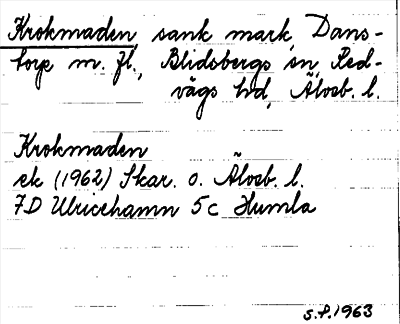 Krokmaden, sank mark, Dans-
torp m. fl., Blidsbergs sn, Red-
vägs hd, Älvsb. l.
Krokmaden
ek (1962) Skar. o. Älvsb. l.
7D Ulricehamn 5c Humla
s.f. 1963